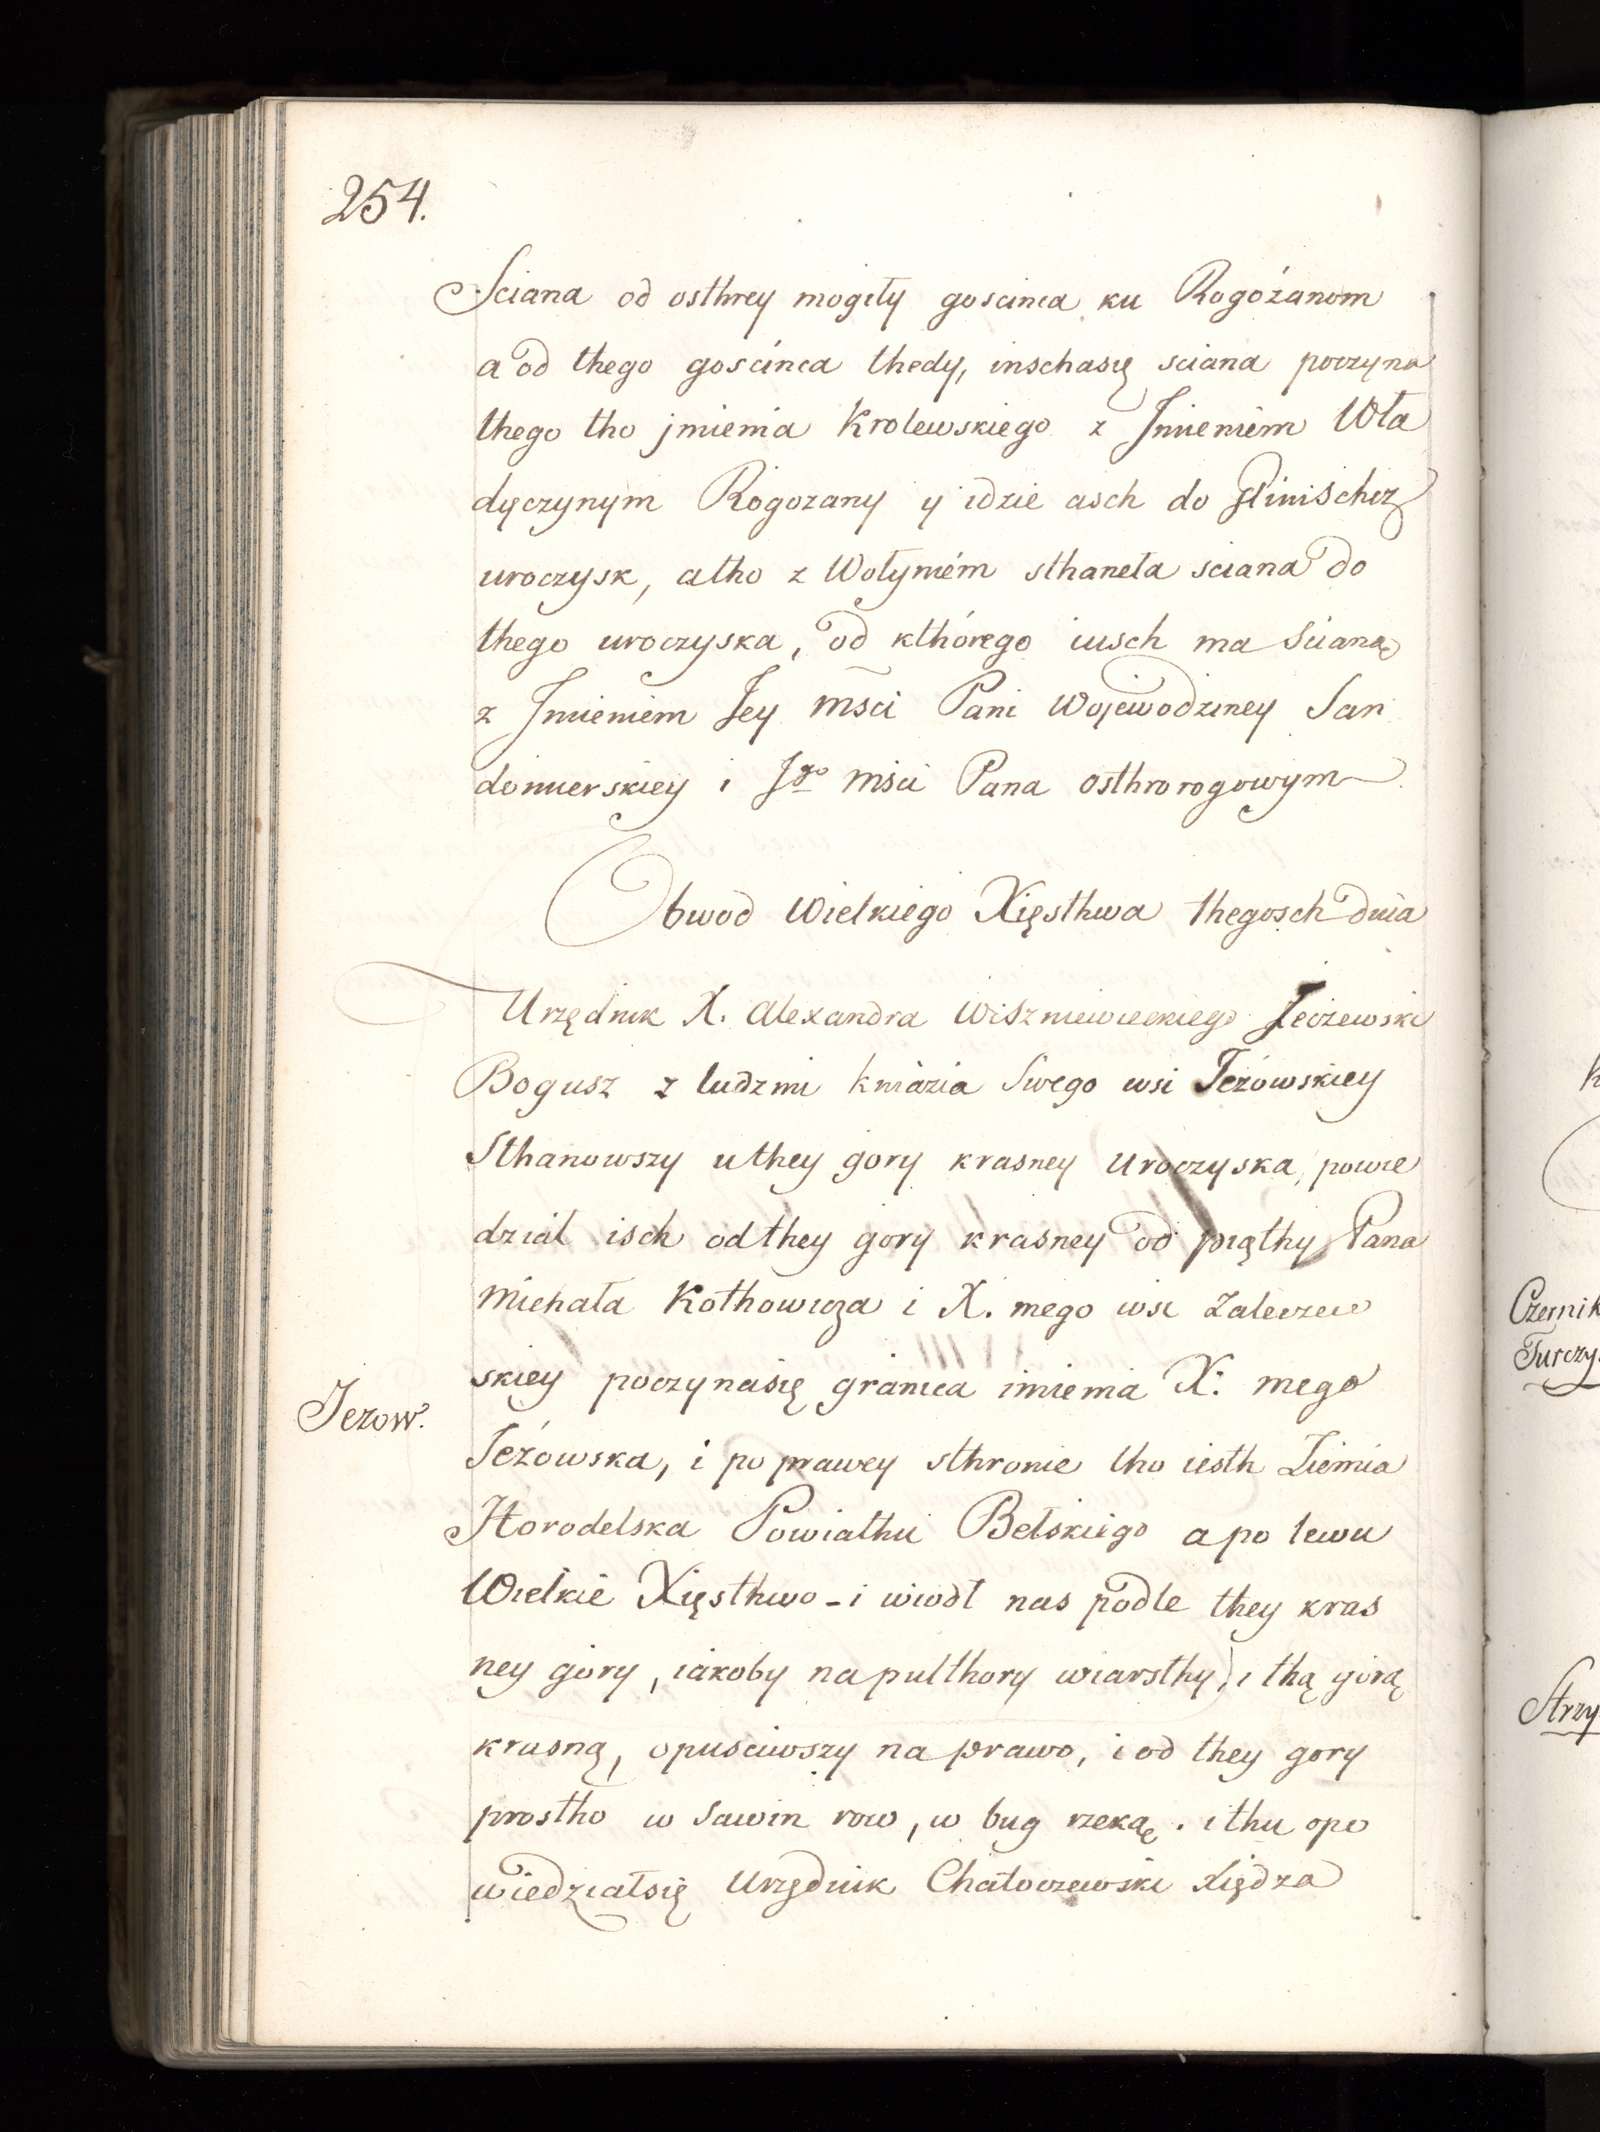 254.
Sciana od osthrey mogiły goscinca ku Rogóżanom
a od thego goscinca thedy, inschasię sciana poczyna
thego tho jmienia Krolewskiego z Jmieniem Wła
dyczynym Rogozany y idzie asch do Glinischcz
uroczysk, atho z Wołyniém sthaneła sciana do
thego uroczyska, od kthórego iusch ma scianą
z Jmieniem Jey mści Pani Wojewodziney San
domierskiey i Jgo mści Pana Osthrorogowym
Obwod Wielkiego Xięsthwa thegosch dnia
Urzędnik X. Alexandra Wiszniewieckiego Jeżewski
Bogusz z ludzmi kniazia Swego wsi Jeżowskiey
Sthanowszy uthey gory krasney Uroczyska, powie
dzial isch odthey gory krasney od piąthy Pana
Michała Kothowicza i X. mego wsi Zaleczew
skiey poczynasię granica imienia X. mego
Jeżowska, i po prawey sthronie tho iesth Ziemia
Horodelska Powiathu Bełskiego a po lewu
Wielkie Xięsthwo - i wiodł nas podle they kras
ney góry, iakoby napulthory wiarsthy, i thą górą
krasną, opusciwszy na prawo, i od they gory
prostho w Sawin row, w bug rzeką. i thu opo
wiedziałsię Urzędnik Chałoczewski Xiędza
Jezow.
Czernik
Turczy
Strzy